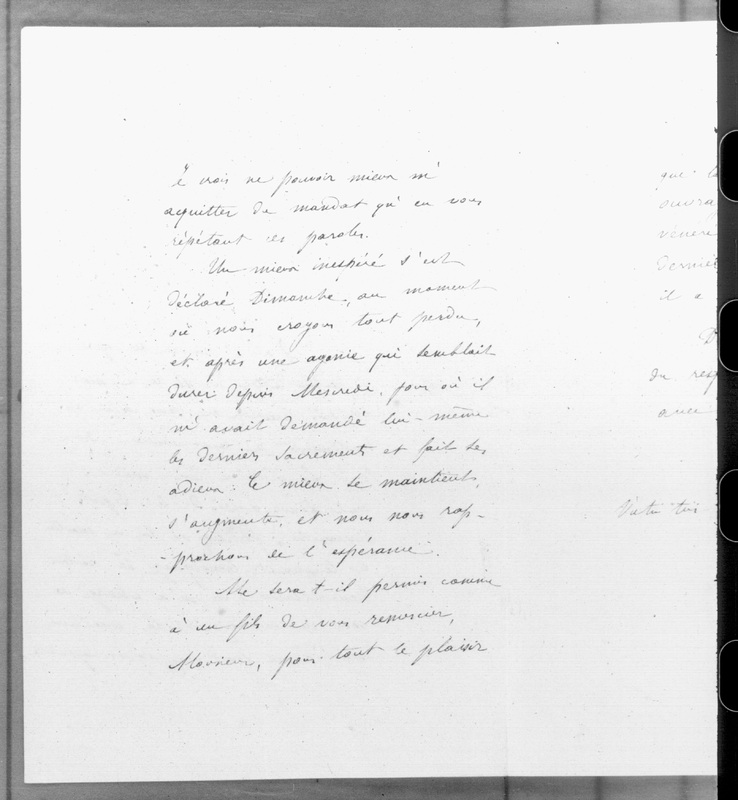 Je crois ne pouvoir mieux m'
acquitter du mandat qu'en vous
répétant ces paroles.
Un mieux inespéré s'est
déclaré Dimanche, au moment
où nous croyons tout perdu,
et après une agonie qui semblait
durer depuis Mercredi, jour où il
m'avait demandé lui-même
les derniers sacrements et fait ses
adieux. Ce mieux se maintient,
s'augmente, et nous nous rap-
-prochons de l'espérance.
Me sera t-il permis comme
à un fils de vous remercier,
Monsieur, pour tout le plaisir
que la
ouvra
vénéré
dernier
il a
D
du resp
avec
Votre très